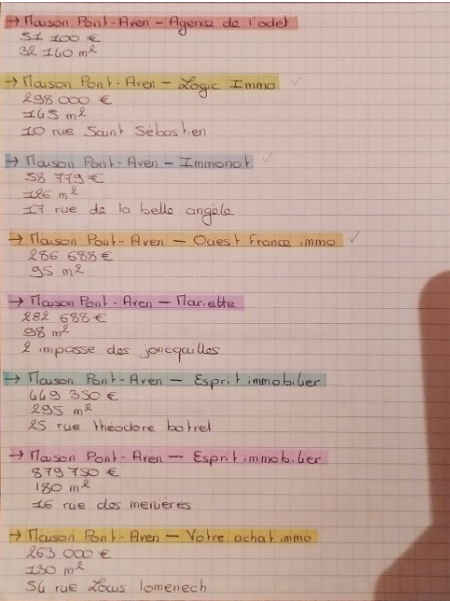 → Maison Pont-Aven – Agence de l'odet
51 100 €
32 140 m²
→ Maison Pont-Aven – Logic Immo ✓
298 000 €
145 m²
10 rue Saint Sébastien
→ Maison Pont-Aven – Immonot ✓
58 779 €
126 m²
17 rue de la belle angèle
→ Maison Pont-Aven – Ouest France immo ✓
286 688 €
95 m²
→ Maison Pont-Aven – Mariette
282 688 €
98 m²
2 impasse des joncquilles
→ Maison Pont-Aven – Esprit immobilier
449 350 €
295 m²
25 rue théodore botrel
→ Maison Pont-Aven – Esprit immobilier
879 750 €
180 m²
16 rue des
→ Maison Pont-Aven – Votre achat immo
263 000 €
130 m²
54 rue Louis lomenech